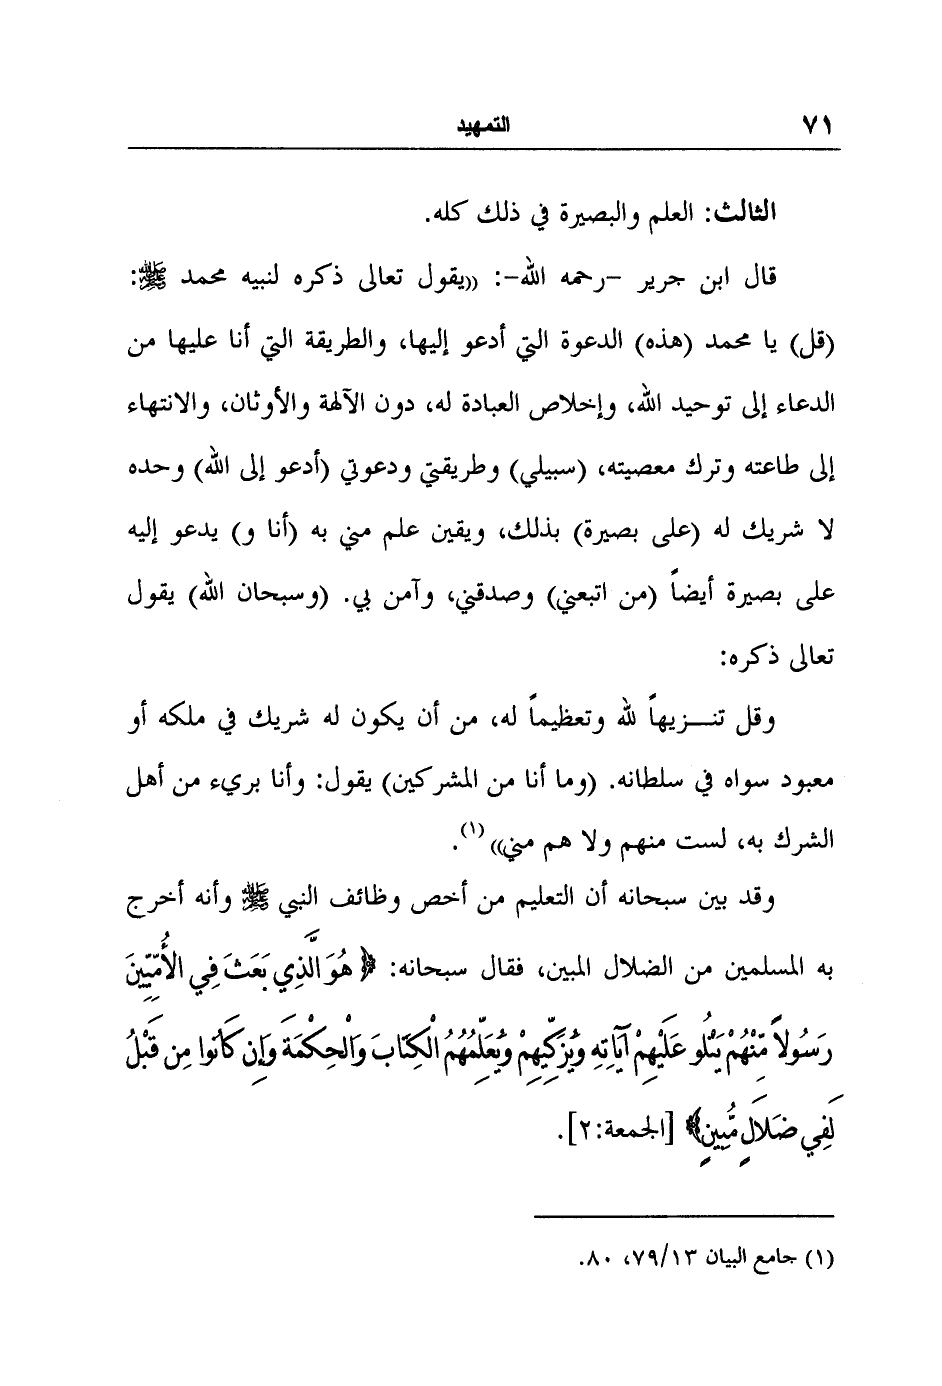 ٧١ التمهيد
الثالث: العلم والبصيرة في ذلك كله.
قال ابن جرير -رحمه الله-: ((يقول تعالى ذكره لنبيه محمد ﷺ:
(قل) يا محمد (هذه) الدعوة التي أدعو إليها، والطريقة التي أنا عليها من
الدعاء إلى توحيد الله، وإخلاص العبادة له، دون الآلهة والأوثان، والانتهاء
إلى طاعته وترك معصيته، (سبيلي) وطريقتي ودعوتي (أدعو إلى الله) وحده
لا شريك له (على بصيرة) بذلك، ويقين علم مني به (أنا و) يدعو إليه
على بصيرة أيضاً (من اتبعني) وصدقني، وآمن بي. (وسبحان الله) يقول
تعالى ذكره:
وقل تنـزيهاً لله وتعظيماً له، من أن يكون له شريك في ملكه أو
معبود سواه في سلطانه. (وما أنا من المشركين) يقول: وأنا بريء من أهل
الشرك به، لست منهم ولا هم مني))(١).
وقد بين سبحانه أن التعليم من أخص وظائف النبي ﷺ وأنه أخرج
به المسلمين من الضلال المبين، فقال سبحانه: ﴿هُوَ الَّذِي بَعَثَ فِي الأُمِّيِّينَ
رَسُولاً مِّنْهُمْ يَتْلُو عَلَيْهِمْ آيَاتِهِ وَيُزَكِّيهِمْ وَيُعَلِّمُهُمُ الْكِتَابَ وَالْحِكْمَةَ وَإِن كَانُوا مِن قَبْلُ
لَفِي ضَلَالٍ مُّبِينٍ﴾ [الجمعة:٢].
(١) جامع البيان ٧٩/١٣، ٨٠.